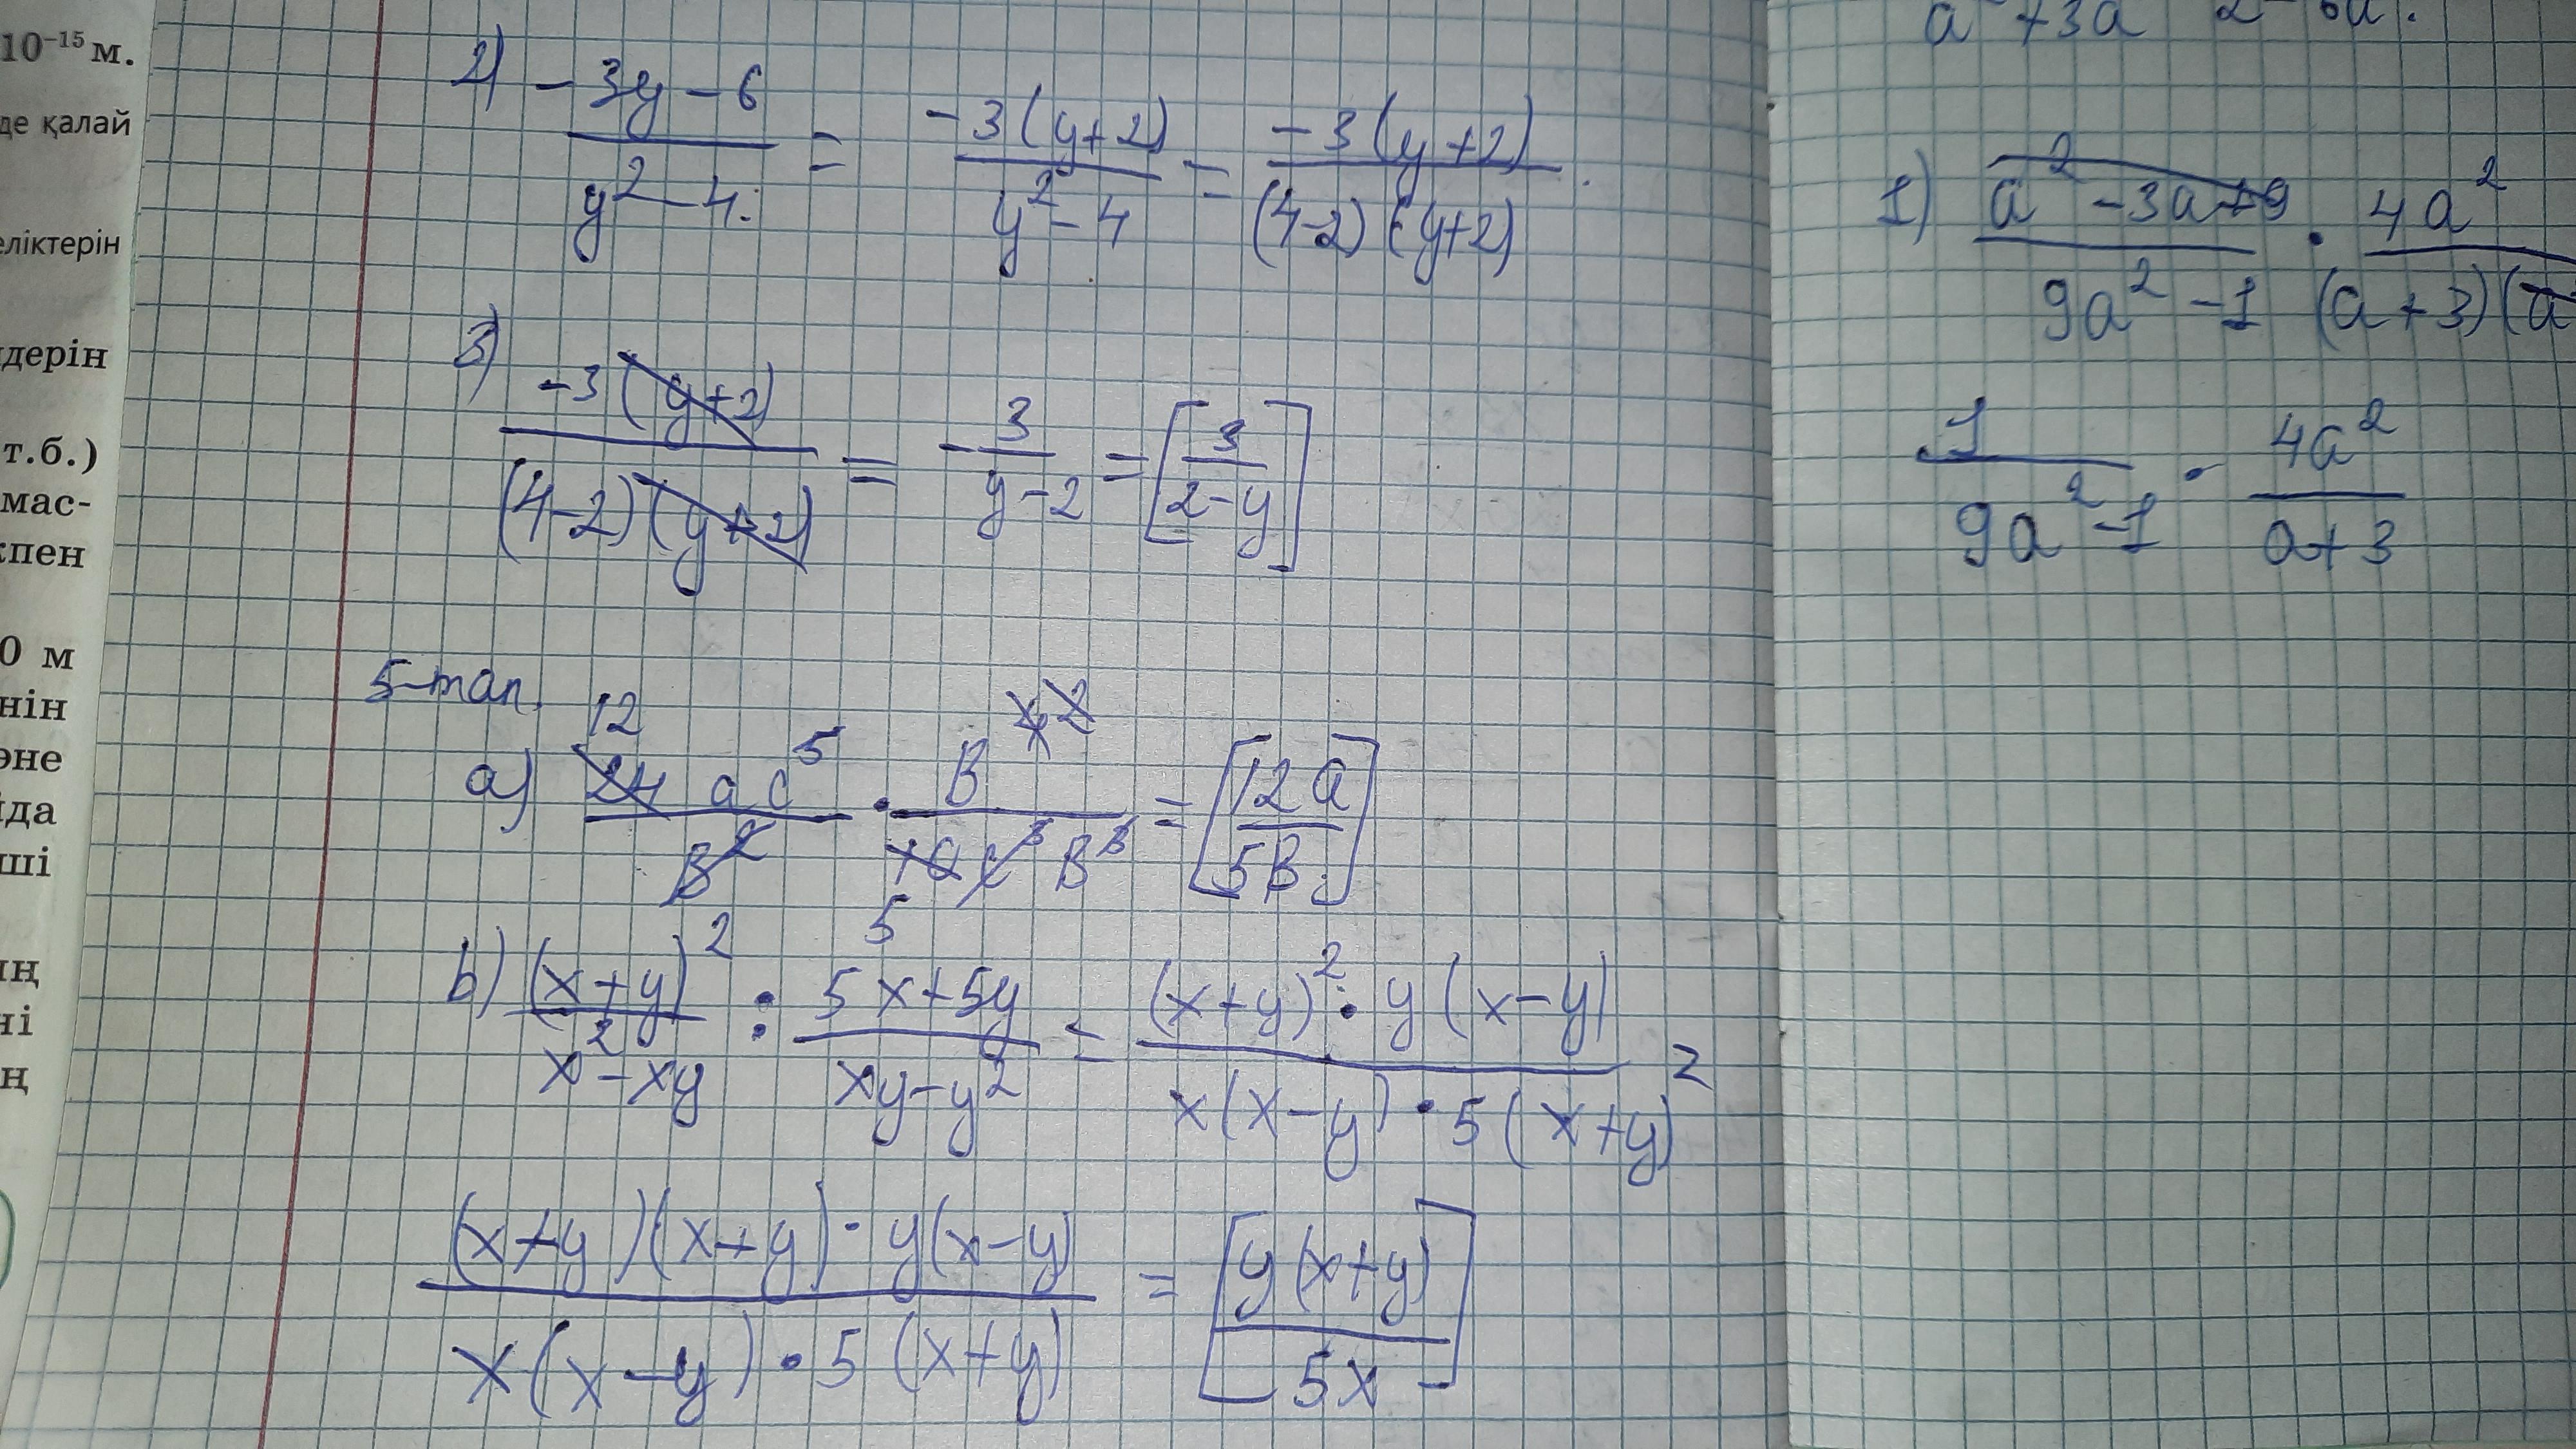 10⁻¹⁵ м.
де қалай
еліктерін
дерін
т.б.)
мас-
кпен
0 м
нін
әне
йда
ші
ің
ні
ң
2) -3y-6/y²-4 = -3(y+2)/y²-4 = -3(y+2)/(4-2)(y+2).
3) -3(y+2)/(4-2)(y+2) = -3/y-2 = [3/2-y]
5-тап.
a) 12 24 ac⁵/B² · B⁴ ²/10 c³ B³ 5 = [12a/5B]
b) (x+y)²/x²-xy : 5x+5y/xy-y² = (x+y)²·y(x-y)/x(x-y)·5(x+y) =
(x+y)(x+y)·y(x-y)/x(x-y)·5(x+y) = [y(x+y)/5x]
a +3a
1) a²-3a+9/9a²-1 · 4a²/(a+3)(a
1/9a²-1 · 4a²/a+3